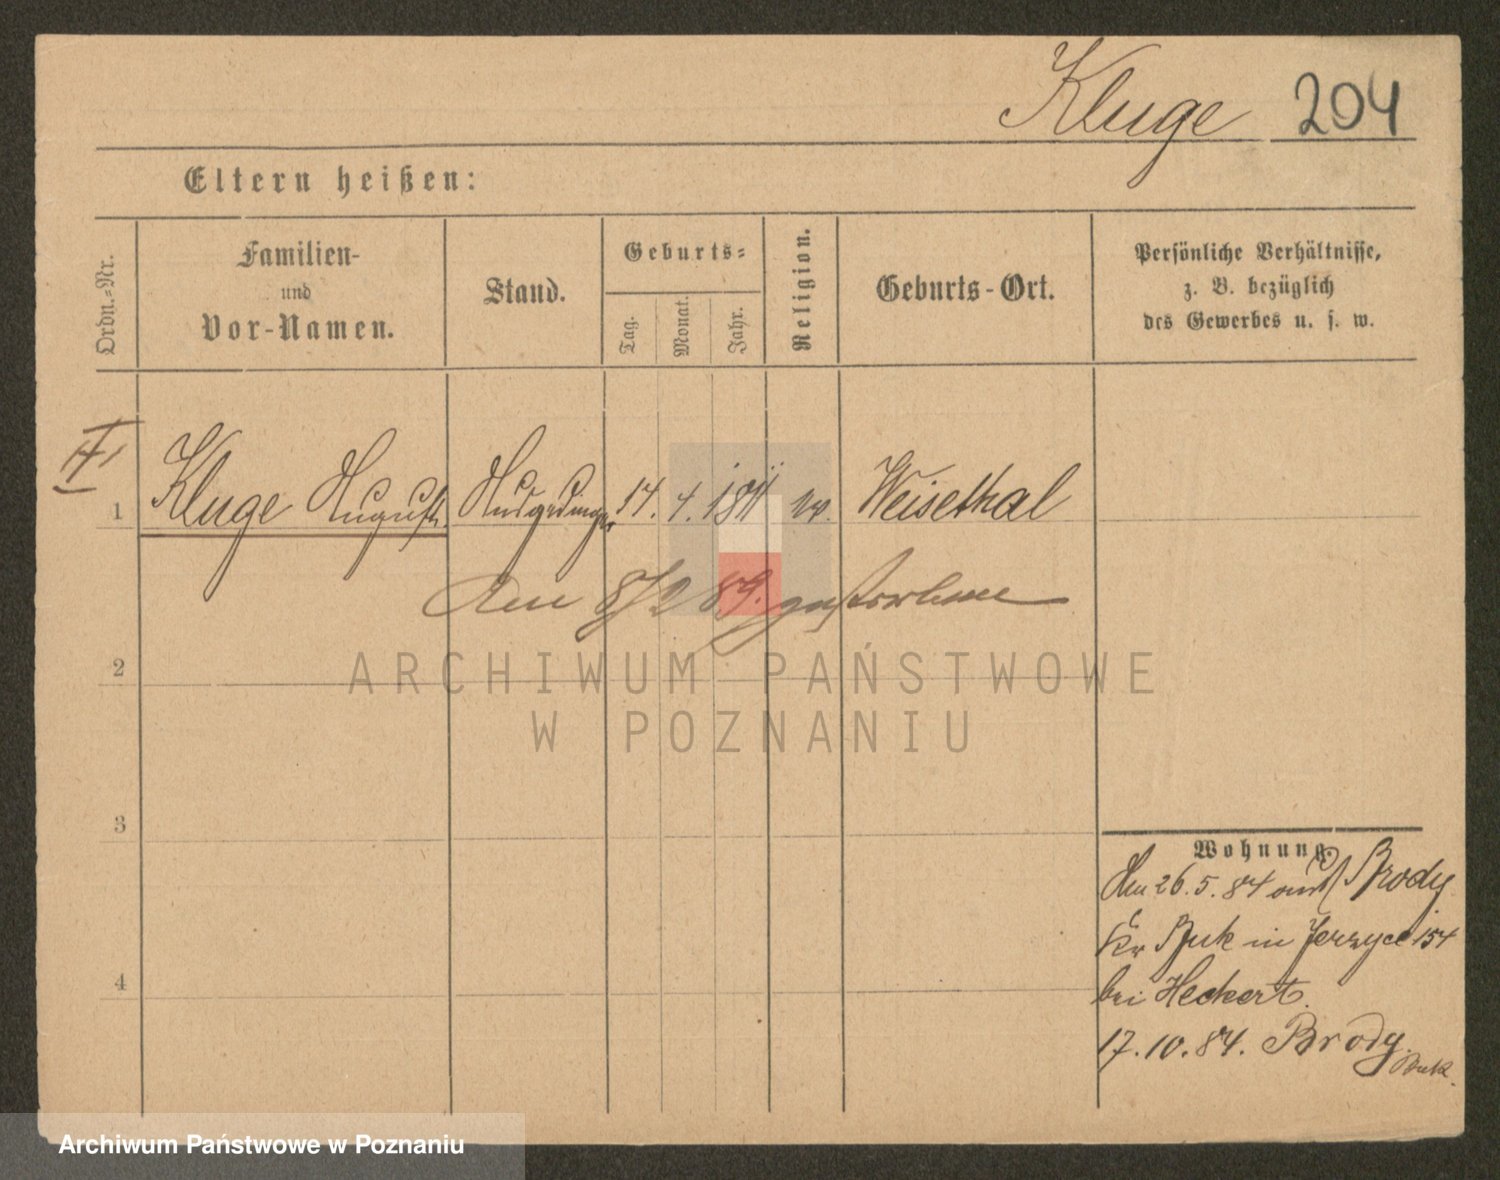 Kluge 204
Eltern heißen:
Ordn.-Nr.
Familien-
und
Vor-Namen.
Stand.
Geburts-
Tag.
Monat.
Jahr.
Religion.
Geburts-Ort.
Persönliche Verhältnisse,
z. B. bezüglich
des Gewerbes u. s. w.
1 Kluge August Ausgedinger 14. 4. 1811 ev. Weisethal
Am 8/2 89. gestorben
2
3
4
Wohnung.
Am 26.5.84 aus Brody
Kr Buk in Jerzyce 154
bei Heckert.
17.10.84. Brody.
Buk.
ARCHIWUM PAŃSTWOWE
W POZNANIU
Archiwum Państwowe w Poznaniu